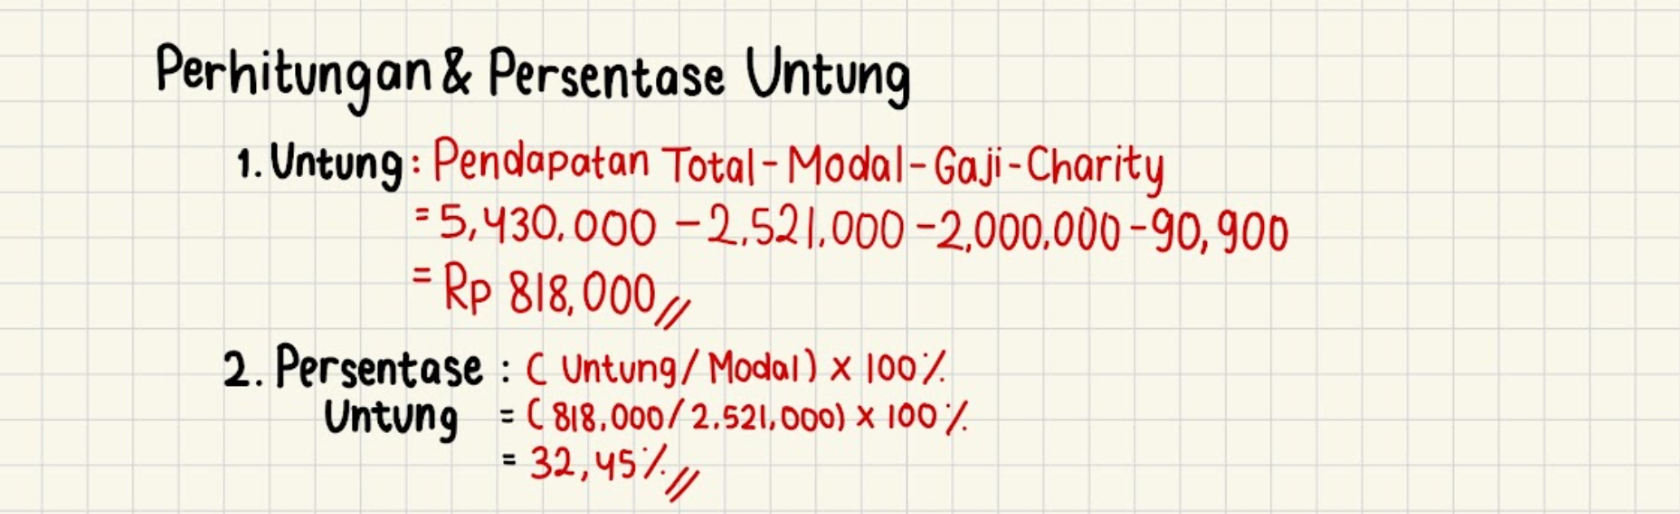 Perhitungan & Persentase Untung
1. Untung : Pendapatan Total - Modal - Gaji - Charity
= 5,430.000 - 2.521.000 - 2,000,000 - 90,900
= Rp 818,000 //
2. Persentase : ( Untung / Modal ) x 100%
Untung = ( 818.000 / 2.521,000) x 100%
= 32,45% //